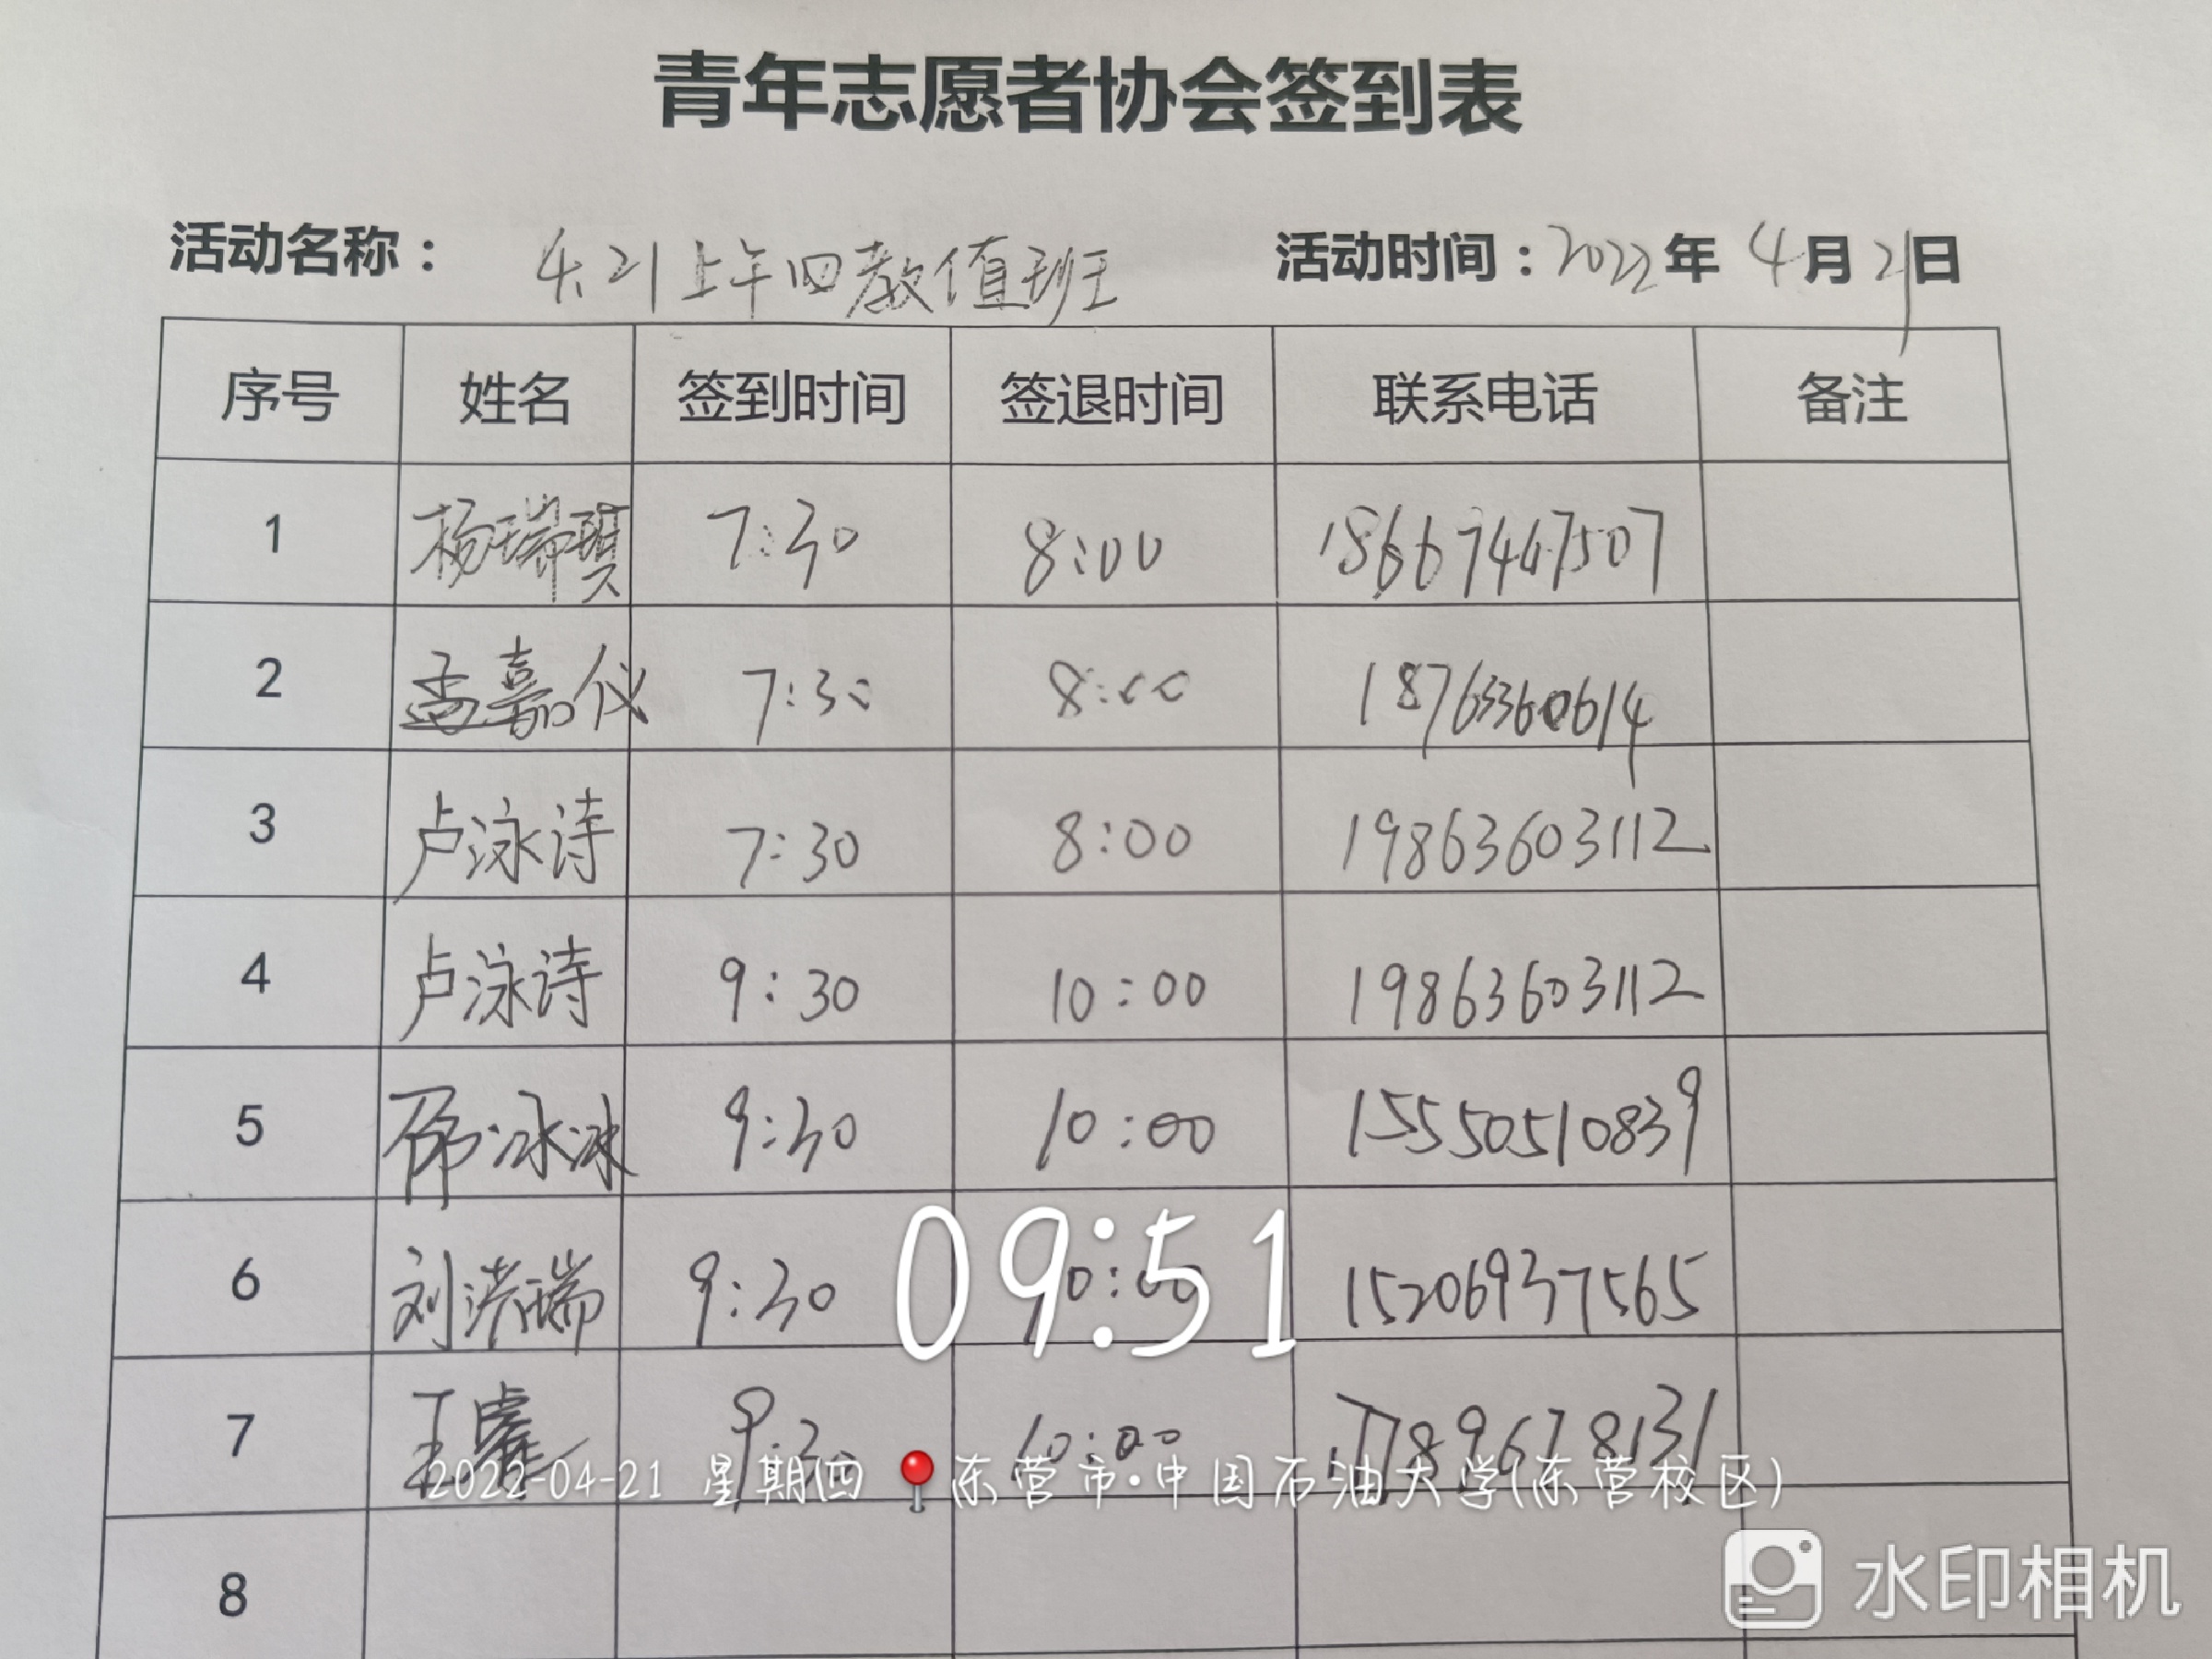 青年志愿者协会签到表
活动名称： 4.21上午四教值班 活动时间：2022年 4月21日
序号 姓名 签到时间 签退时间 联系电话 备注
1 杨瑞琪 7:30 8:00 18667467507
2 孟嘉仪 7:30 8:00 18763360614
3 卢泳诗 7:30 8:00 19863603112
4 卢泳诗 9:30 10:00 19863603112
5 邵冰冰 9:30 10:00 15550510839
6 刘洪瑞 9:30 10:00 15206937565
09:51
7 王睿 9:30 10:00 1789678131
2022-04-21 星期四 东营市·中国石油大学(东营校区)
8
水印相机